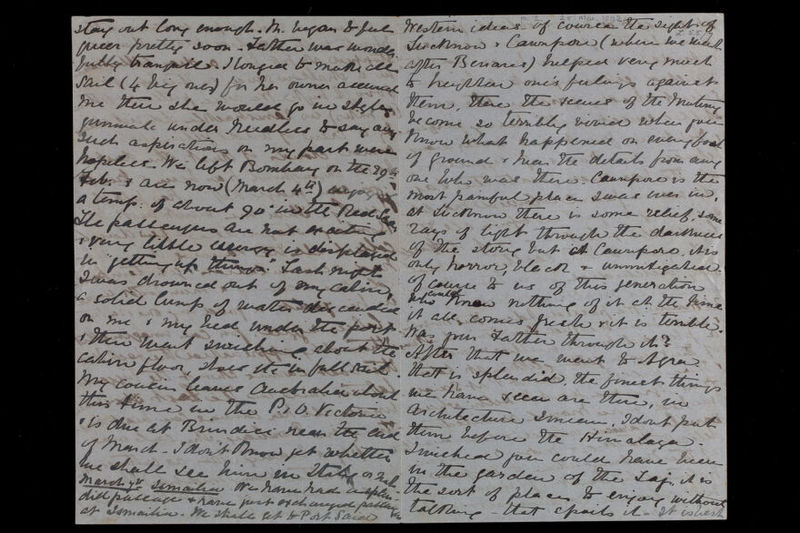 stay out long enough. M. began to feel
queer pretty soon. Father was wonder
fully tranquil. I longed to make all
sail (4 big ones) for her owner assured
me then she would go in style,
gunwale under needless to say any
such aspirations on my part were
hopeless. We left Bombay on the 29th
Feb. & are now (March 4th) enjoying
a temp. of about 90° in the Red Sea
The passengers are not exciting
& very little energy is displayed
in "getting up things". Last night
I was drowned out of my cabin,
a solid lump of water descended
on me & my bed under the port
& then went swishing about the
cabin floor, shoes &c in full sail
My cousin leaves Australia about
this time in the P. & O. Victoria
& is due at Brindisi near the end
of March. I don't know yet whether
we shall see him in Italy or
March 7th Ismailia We have had a splen-
did passage & have just exchanged
at Ismailia. We shall get to Port Said
Western ideas of course the sight of
Lucknow & Cawnpore (where we went
after Benares) helped very much
to heighten one's feelings against
them, there the scenes of the Mutiny
become so terribly vivid when you
know what happened on every foot
of ground & hear the details from any
one who was there. Cawnpore is the
most painful place I was ever in,
at Lucknow there is some relief, some
rays of light through the darkness
of the story but at Cawnpore, it is
only horror black & unmitigated.
Of course to us of this generation
who knew nothing of it at the time
it all comes fresh & it is terrible.
Was your Father through it?
After that we went to Agra
that is splendid, the finest things
we have seen are there, in
architecture I mean. I don't put
them before the Himalaya.
I wished you could have been
in the garden of the Taj, it is
the sort of place to enjoy without
talking – that spoils it – It is